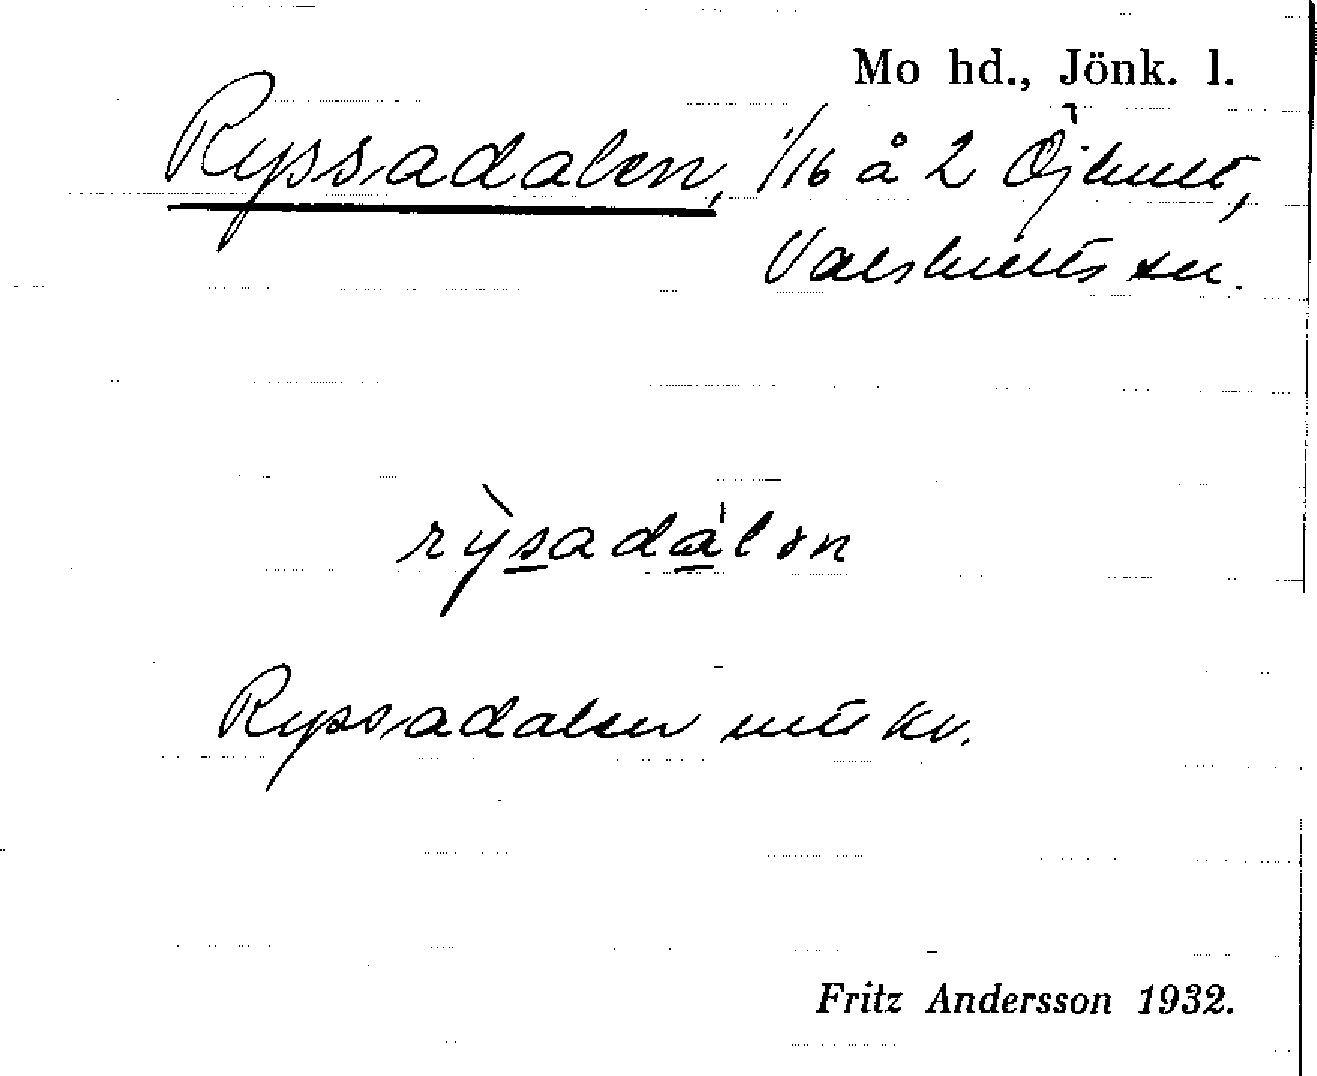 Mo hd., Jönk. l.
Ryssadalen, 1/16 å 2 Öjhult,
Valshults sn.
rỳsadálən
Ryssadalen mtl kv.
Fritz Andersson 1932.